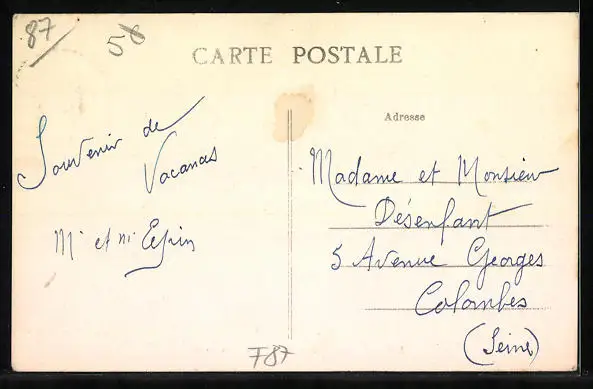 87
58
CARTE POSTALE
Souvenir de
Vacances
Mr et m
Adresse
Madame et Monsieur
Désenfant
5 Avenue Georges
Colombes
(Seine)
F87